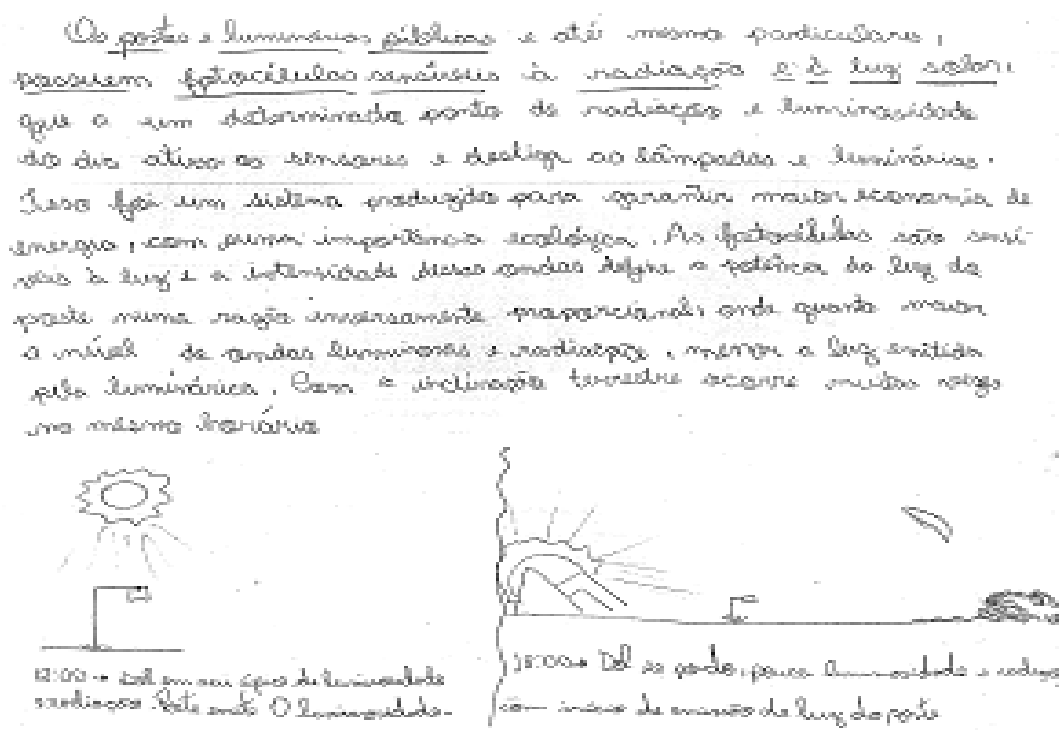 Os postes e luminárias públicas e até mesmo particulares,
possuem fotocélulas sensíveis à radiação e à luz solar
que a um determinado ponto de radiação e luminosidade
do dia ativa os sensores e desliga as lâmpadas e luminárias.
Isso foi um sistema produzido para garantir maior economia de
energia, com suma importância ecológica. As fotocélulas são sensí
veis à luz e a intensidade dessas ondas define a potência da luz do
poste numa razão inversamente proporcional, onde quanto maior
o nível de ondas luminosas e radiação, menor a luz emitida
pela luminária. Com a inclinação terrestre ocorre muitas vezes
no mesmo horário
12:00 → Sol em seu ápice de luminosidade
e radiação. Poste emite 0 luminosidade.
18:00 → Sol se pondo, pouca luminosidade e
início de emissão de luz do poste